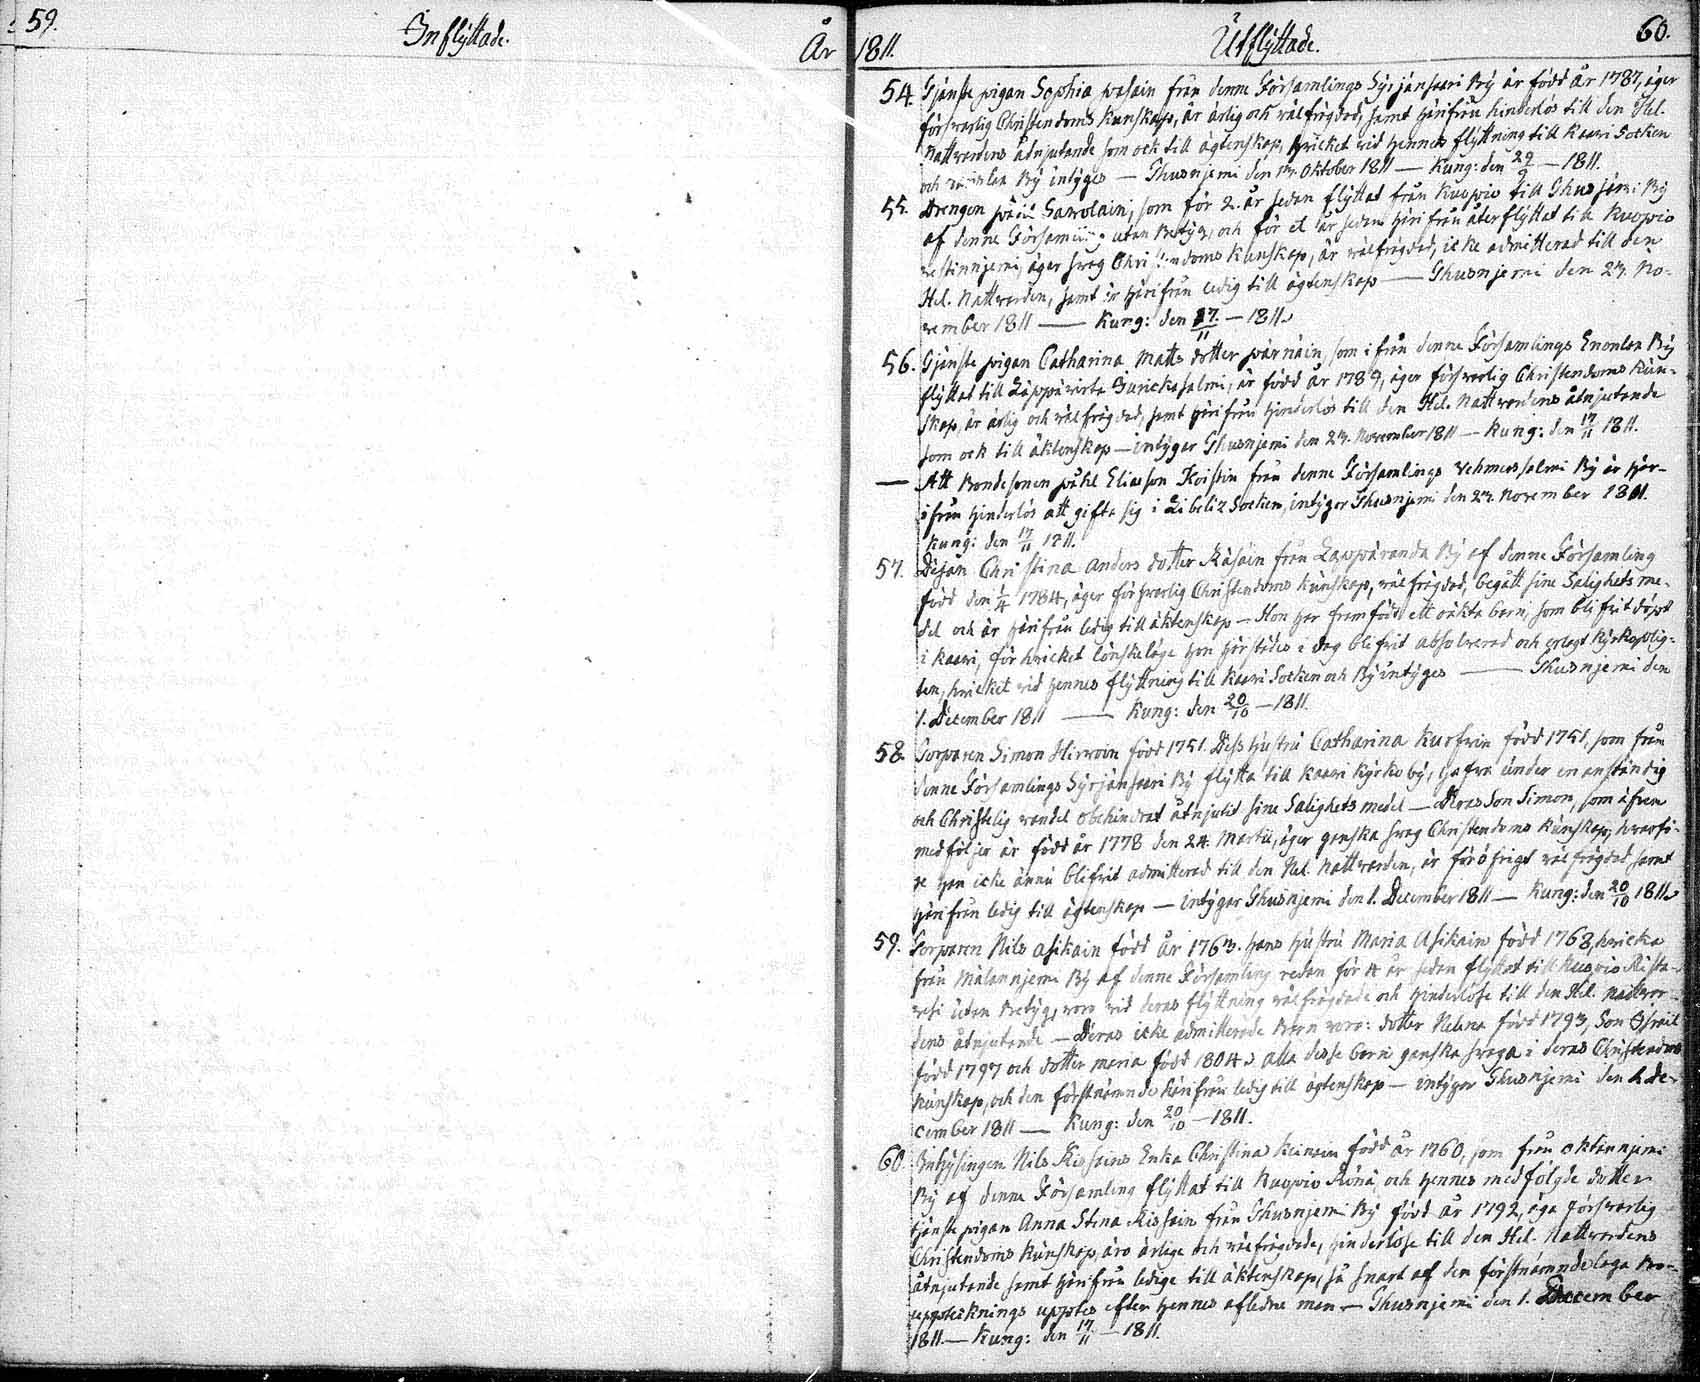 59. Inflÿttade. År
1811. Utflÿttade. 60.
54. Tjänste pigan Sophia från denne Församlings Sÿrjänsaari Bÿ är född år 1787, äger
försvarlig Christendoms kunskap, är ärlig och välfrägdad, samt härifrån hinderlös till den Hel.
Nattvardens åtnjutande som ock till ägtenskap, hvicket vid hennes flÿttning till Kaavi Socken
och Bÿ intÿges — Thusnjemi den 13. Oktober 1811 — Kung: den 29/9 — 1811.
55. Drengen Savolain, som för 2. år sedan flÿttat från Kuopio till Thusnjemi Bÿ
af denne Församling utan Betÿg, och för et år sedan härifrån återflÿttat till Kuopio
äger svag Christendoms kunskap, är välfrägdad, icke admitterad till den
Hel. Nattvarden, samt är härifrån ledig till ägtenskap — Thusnjemi den 23. No-
vember 1811 — Kung: den 17./11 — 1811.
56. Tjänste pigan Catharina Matts dotter Pärnäin, som ifrån denne Församlings Enonlax Bÿ
flÿttat till Läppävirta Jurickasalmi, är född år 1789, äger försvarlig Christendoms kun-
skap, är ärlig och välfrägdad, samt härifrån hinderlös till den Hel. Nattvardens åtnjutande
som ock till äktenskap — intÿgar Thusnjemi den 23. November 1811 — Kung: den 17/11 1811.
— Att Bondesonen Påhl Eliasson Koistin från denne Församlings Vehmersalmi Bÿ är här-
ifrån hinderlös att gifta sig i Libeliz Socken, intÿgar Thusnjemi den 23. November 1811.
Kung: den 17/11 1811.
57. Pigan Christina Anders dotter Räsäin från Lappäranda Bÿ af denne Församling
född den 1/4 1784, äger försvarlig Christendoms kunskap, välfrägdad, begått sine Salighets me-
del och är härifrån ledig till äktenskap — Hon har framfödt ett oäkta barn, som blifvit döpt
i Kaavi, för hvicket lönskeläge hon härstädes i dag blifvit absolverad och erlagt kÿrkoplig-
ten, hvicket vid hennes flÿttning till Kaavi Socken och Bÿ intÿges — Thusnjemi den
1. December 1811 — Kung: den 20/10 — 1811.
58. Torparen Simon Hirvoin född 1751. Dess hustru Catharina Kurfvin född 1751, som från
denne Församlings Sÿrjänsaari Bÿ flÿtta till Kaavi Kÿrkobÿ, hafva under en anständig
och Christelig vandel obehindrat åtnjutit sine Salighets medel — Deras Son Simon, som äfven
medföljer är född år 1778 den 24. Martii, äger ganska svag Christendoms kunskap, hvarfö-
re han icke ännu blifvit admitterad till den Hel. Nattvarden, är för öfrigt välfrägdad, samt
härifrån ledig till ägtenskap — intÿgar Thusnjemi den 1. December 1811 — Kung: den 20/10 1811.
59. Torparen Nils Asikain född år 1763. hans hustru Maria Asikain född 1768, hvicka
från Målannjemi Bÿ af denne Församling redan för 4 år sedan flÿttat till Kuopio Rista-
vesi utan Betÿg, voro vid deras flÿttning välfrägdade och hinderlöse till den Hel. Nattvar-
dens åtnjutande — Deras icke admitterade Barn voro: dotter Helena född 1793, Son Israil
född 1797 och dotter Maria född 1804. alla desse barn ganska svaga i deras Christendoms
kunskap, och den förstnämnde härifrån ledig till ägtenskap — intÿgar Thusnjemi den 1. De-
cember 1811 — Kung: den 20/10 — 1811.
60. Inhÿsingen Nils Kissains Enka Christina Keinain född år 1760, som från Oktannjemi
Bÿ af denne Församling flÿttat till Kuopio Rönä, och hennes medfölgde dotter
tjänste pigan Anna Stina Kissain från Thusnjemi Bÿ född år 1792, äga försvarlig
Christendoms kunskap, äro ärlige och välfrägdade, hinderlöse till den Hel. Nattvardens
åtnjutande samt härifrån ledige till äktenskap, så snart af den förstnämnde laga Bo-
uppteknings upptes efter hennes aflidne man — Thusnjemi den 1. December
1811. — Kung: den 17/11 — 1811.